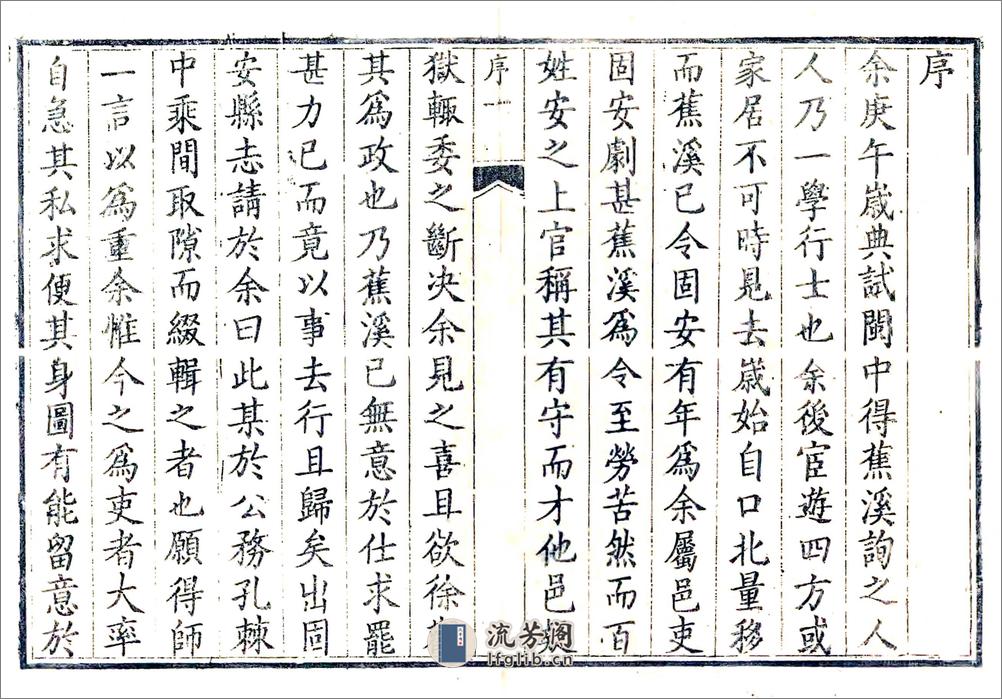 序
余庚午歲典試閩中得蕉溪詢之人
人乃一學行士也余後宦遊四方或
家居不可時見去歲始自口北量移
而蕉溪已令固安有年爲余屬邑吏
固安劇甚蕉溪爲令至勞苦然而百
姓安之上官稱其有守而才他邑
序 一
獄輒委之斷决余見之喜且欲徐
其爲政也乃蕉溪已無意於仕求罷
甚力已而竟以事去行且歸矣出固
安縣志請於余曰此某於公務孔棘
中乘間取隙而綴輯之者也願得師
一言以爲重余惟今之爲吏者大率
自急其私求便其身圖有能留意於
流芳阁
lfglib.cn